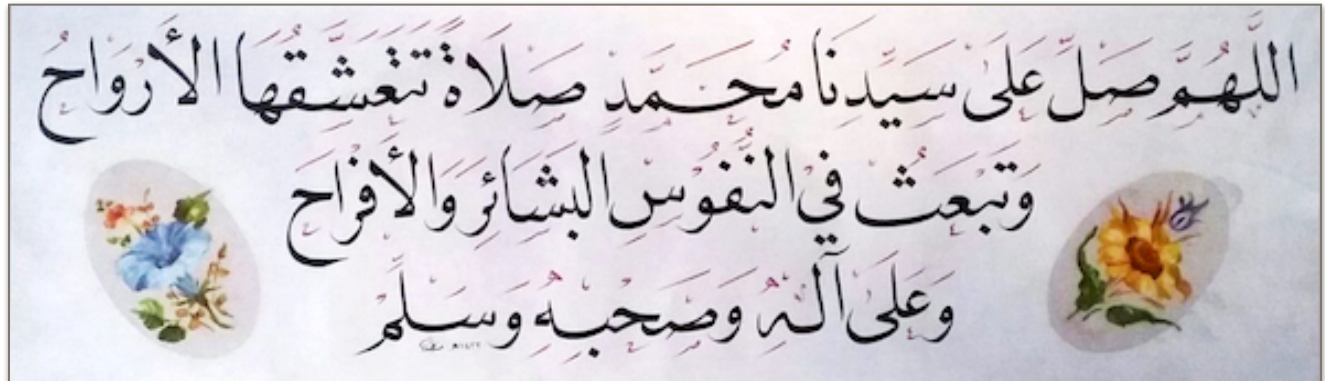 اللَّهُمَّ صَلِّ عَلَىٰ سَيِّدِنَا مُحَمَّدٍ صَلَاةً تَتَعَشَّقُهَا الأَرْوَاحُ
وَتَبْعَثُ فِي النُّفُوسِ الْبَشَائِرَ وَالأَفْرَاحَ
وَعَلَىٰ آلِهِ وَصَحْبِهِ وَسَلِّمْ